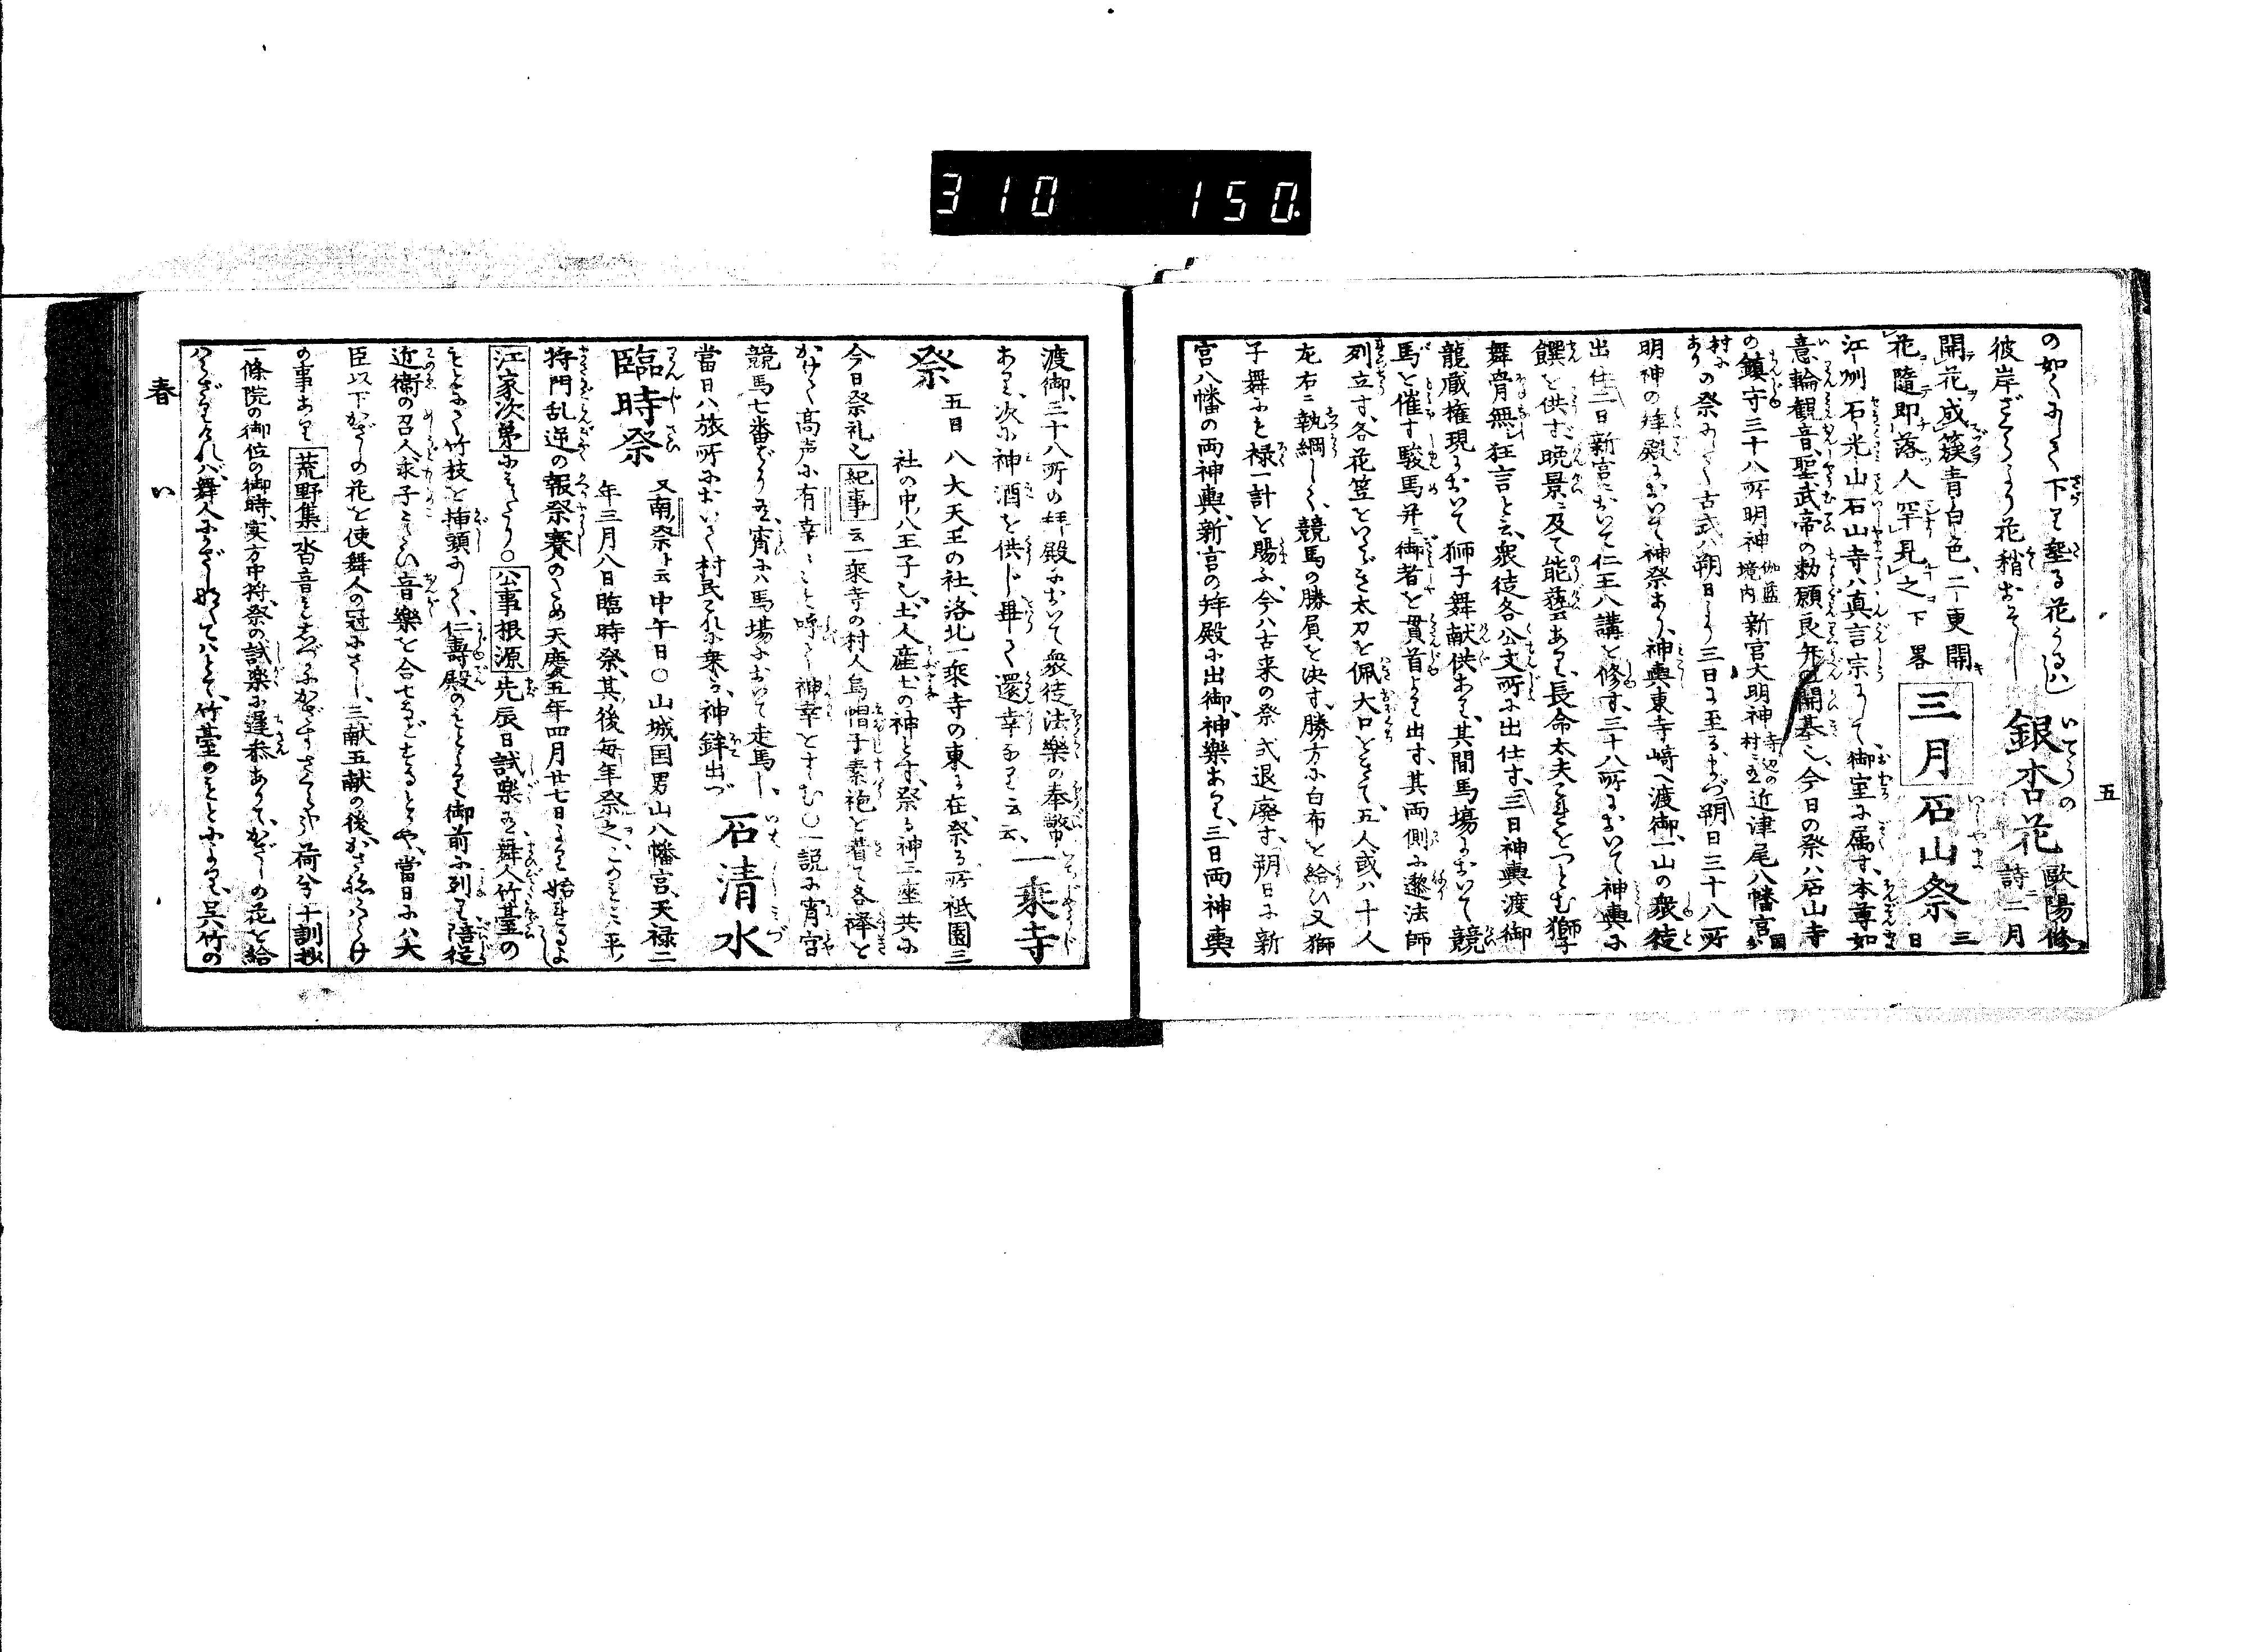 310 150
五
の如くにして下に埀る花うるはし
銀杏花
歐陽修詩二月
彼岸ざくらより花稍おそし
開花成簇青白色、二更開
花隨即落人罕見之下畧
三月
石山祭 三日
江州石光山石山寺ハ真言宗にして御室に属す、本尊如
意輪観音、聖武帝の勅願良弁の開基也、今日の祭ハ石山寺
の鎮守三十八所明神 伽藍境内 新宮大明神 寺辺の村ニ在 近津尾八幡宮
村にあり の祭にして古式ハ朔日より三日に至る、まづ朔日三十八所
明神の拜殿において神祭あり、神輿東寺﨑へ渡御、一山の衆徒
出仕、二日新宮において仁王八講を修す、三十八所において神輿に
饌を供ず、晩景ニ及て能藝あり、長命太夫これをつとむ、獅子
舞骨無狂言と云、衆徒各公文所に出仕す、三日神輿渡御
龍蔵権現において獅子舞献供あり、其間馬場において競
馬を催す、駿馬并ニ御者を貫首より出す、其両側に遫法師
列立す、各花笠をいたゞき太刀を佩大口をきて、五人或ハ十人
左右ニ執綱して、競馬の勝負を決す、勝方に白布を給ひ又獅
子舞にも禄一計を賜ふ、今ハ古来の祭式退廃す、朔日に新
宮八幡の両神輿、新宮の拜殿に出御、神樂あり、三日両神輿
渡御、三十八所の拜殿において衆徒法樂の奉幣
一乗寺
あり、次に神酒を供じ畢て還幸なり云云、
祭
五日 八大天王の社、洛北一乗寺の東に在、祭る所祗園三
社の中、八王子也、土人産土の神とす、祭る神二座共に
今日祭礼也 紀事 云一乗寺の村人烏帽子素袍を着て各襷を
かけて高声に有幸〻〻と呼て神幸をすゝむ〇一説に宵宮
競馬七番ばかり在、宵にハ馬場において走馬し、
當日ハ旅所において村民これに乗る、神鉾出づ
石清水
臨時祭
又南祭ト云中午日〇山城国男山八幡宮、天禄二
年三月八日臨時祭、其後毎年祭之、このもとハ平ノ
将門乱逆の報祭賽のため天慶五年四月廿七日より始まるよし
江家次第 にみえたり〇 公事根源 先辰日試樂在舞人竹䑓の
もとにて竹枝を挿頭にして、仁壽殿のもとより御前に列り陪従
近衛の召人求子うたひ音樂を合せなどするとや、當日にハ大
臣以下かざしの花を使舞人の冠にさし、三献五献の後、かさねかはらけ
の事あり 荒野集 沓音もしづかにかざすさくら哉 荷兮 十訓抄
一條院の御位の御時、実方中将、祭の試樂に遅参ありて、かざしの花を給
はらざりければ、舞人にかざしなくてハとて、竹䑓のもとによりて、呉竹の
春 い